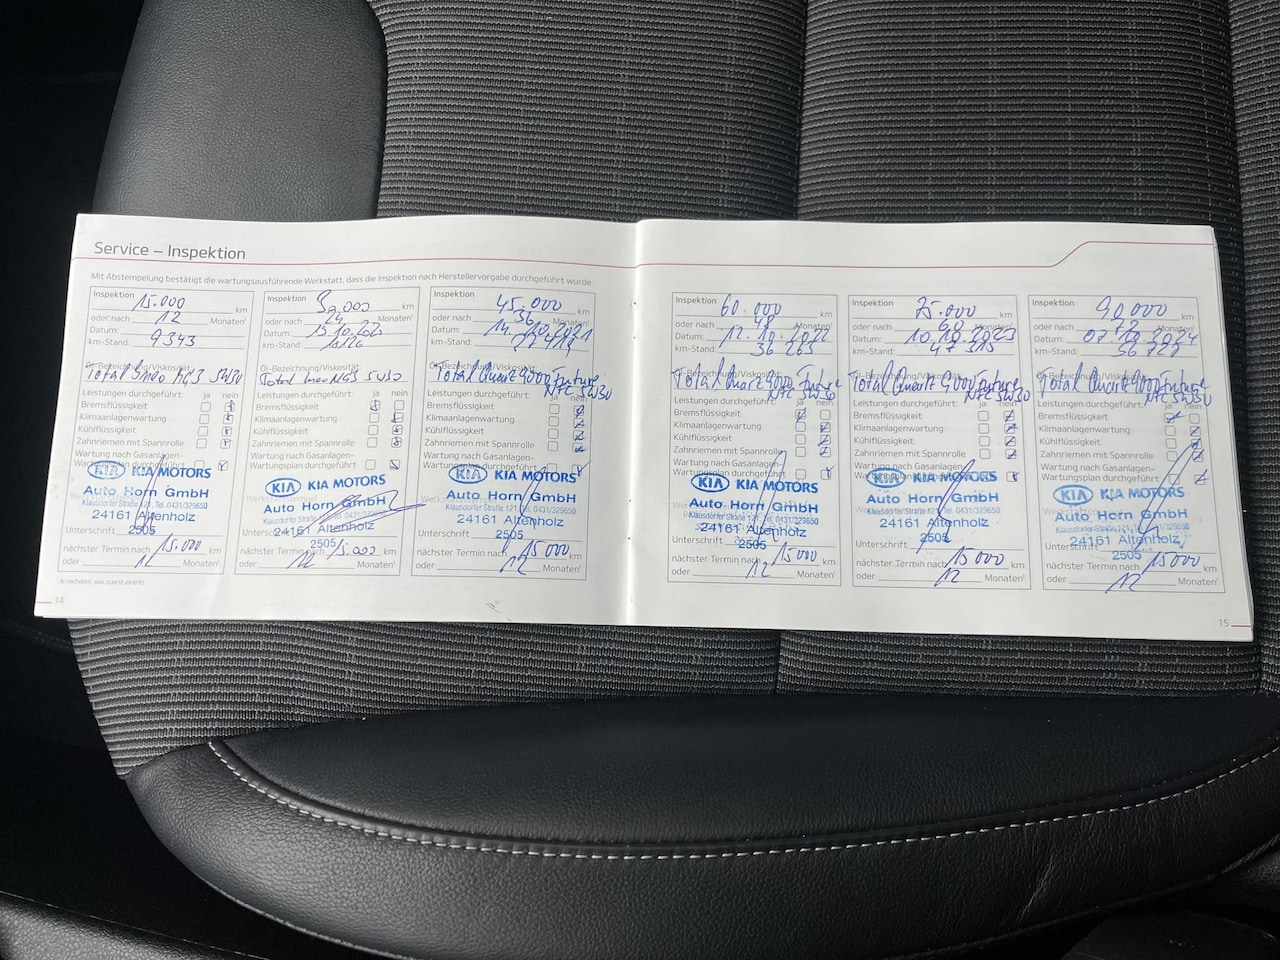 Service – Inspektion
Mit Abstempelung bestätigt die wartungsausführende Werkstatt, dass die Inspektion nach Herstellervorgabe durchgeführt wurde.
Inspektion 15.000 km
oder nach 12 Monaten¹
Datum:
km-Stand: 9343
Öl-Bezeichnung/Viskosität:
Total Ineo MC3 5W30
Leistungen durchgeführt: ja nein
Bremsflüssigkeit
Klimaanlagenwartung
Kühlflüssigkeit
Zahnriemen mit Spannrolle
Wartung nach Gasanlagen-
Wartungsplan durchgeführt
KIA KIA MOTORS
Auto Horn GmbH
Klausdorfer Straße 121, Tel. 0431/329650
24161 Altenholz
2505
Unterschrift
nächster Termin nach 15.000 km
oder 12 Monaten¹
Inspektion km
oder nach 24 Monaten¹
Datum:
km-Stand:
Öl-Bezeichnung/Viskosität:
Total Ineo MC3 5W30
Leistungen durchgeführt: ja nein
Bremsflüssigkeit
Klimaanlagenwartung
Kühlflüssigkeit
Zahnriemen mit Spannrolle
Wartung nach Gasanlagen-
Wartungsplan durchgeführt
KIA KIA MOTORS
Auto Horn GmbH
Klausdorfer Straße 121, Tel. 0431/329650
24161 Altenholz
2505
nächster Termin nach 15.000 km
oder 12 Monaten¹
Inspektion 45.000 km
oder nach 36 Monaten¹
Datum: 14.10.2021
km-Stand:
Öl-Bezeichnung/Viskosität:
Total Quartz 9000 Future
NFC 5W30
Leistungen durchgeführt: ja nein
Bremsflüssigkeit
Klimaanlagenwartung
Kühlflüssigkeit
Zahnriemen mit Spannrolle
Wartung nach Gasanlagen-
Wartungsplan durchgeführt
KIA KIA MOTORS
Auto Horn GmbH
Klausdorfer Straße 121, Tel. 0431/329650
24161 Altenholz
2505
Unterschrift
nächster Termin nach 15000 km
oder 12 Monaten¹
¹ Je nachdem, was zuerst eintritt.
14
Inspektion 60.000 km
oder nach 48 Monaten¹
Datum: 12.10.2022
km-Stand: 36 263
Öl-Bezeichnung/Viskosität:
Total Quartz 9000 Future
NFC 5W30
Leistungen durchgeführt: ja nein
Bremsflüssigkeit
Klimaanlagenwartung
Kühlflüssigkeit
Zahnriemen mit Spannrolle
Wartung nach Gasanlagen-
Wartungsplan durchgeführt
KIA KIA MOTORS
Auto Horn GmbH
Klausdorfer Straße 121, Tel. 0431/329650
24161 Altenholz
2505
Unterschrift
nächster Termin nach 15000 km
oder 12 Monaten¹
Inspektion 75.000 km
oder nach 60 Monaten¹
Datum: 10.10.2023
km-Stand: 47 315
Öl-Bezeichnung/Viskosität:
Total Quartz 9000 Future
NFC 5W30
Leistungen durchgeführt: ja nein
Bremsflüssigkeit
Klimaanlagenwartung
Kühlflüssigkeit
Zahnriemen mit Spannrolle
Wartung nach Gasanlagen-
Wartungsplan durchgeführt
KIA KIA MOTORS
Auto Horn GmbH
Klausdorfer Straße 121, Tel. 0431/329650
24161 Altenholz
2505
Unterschrift
nächster Termin nach 15000 km
oder 12 Monaten¹
Inspektion 90.000 km
oder nach 72 Monaten¹
Datum: 07.10.2024
km-Stand:
Öl-Bezeichnung/Viskosität:
Total Quartz 9000 Future
NFC 5W30
Leistungen durchgeführt: ja nein
Bremsflüssigkeit
Klimaanlagenwartung
Kühlflüssigkeit
Zahnriemen mit Spannrolle
Wartung nach Gasanlagen-
Wartungsplan durchgeführt
KIA KIA MOTORS
Auto Horn GmbH
Klausdorfer Straße 121, Tel. 0431/329650
24161 Altenholz
2505
Unterschrift
nächster Termin nach 15000 km
oder 12 Monaten¹
15